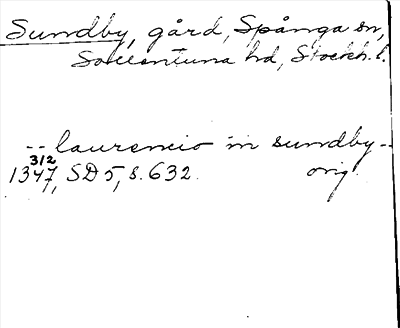 Sundby, gård, Spånga sn,
Sollentuna hd, Stockh. l.
-- laurencio in sundby --
1347 3/2, SD 5, s. 632. orig.